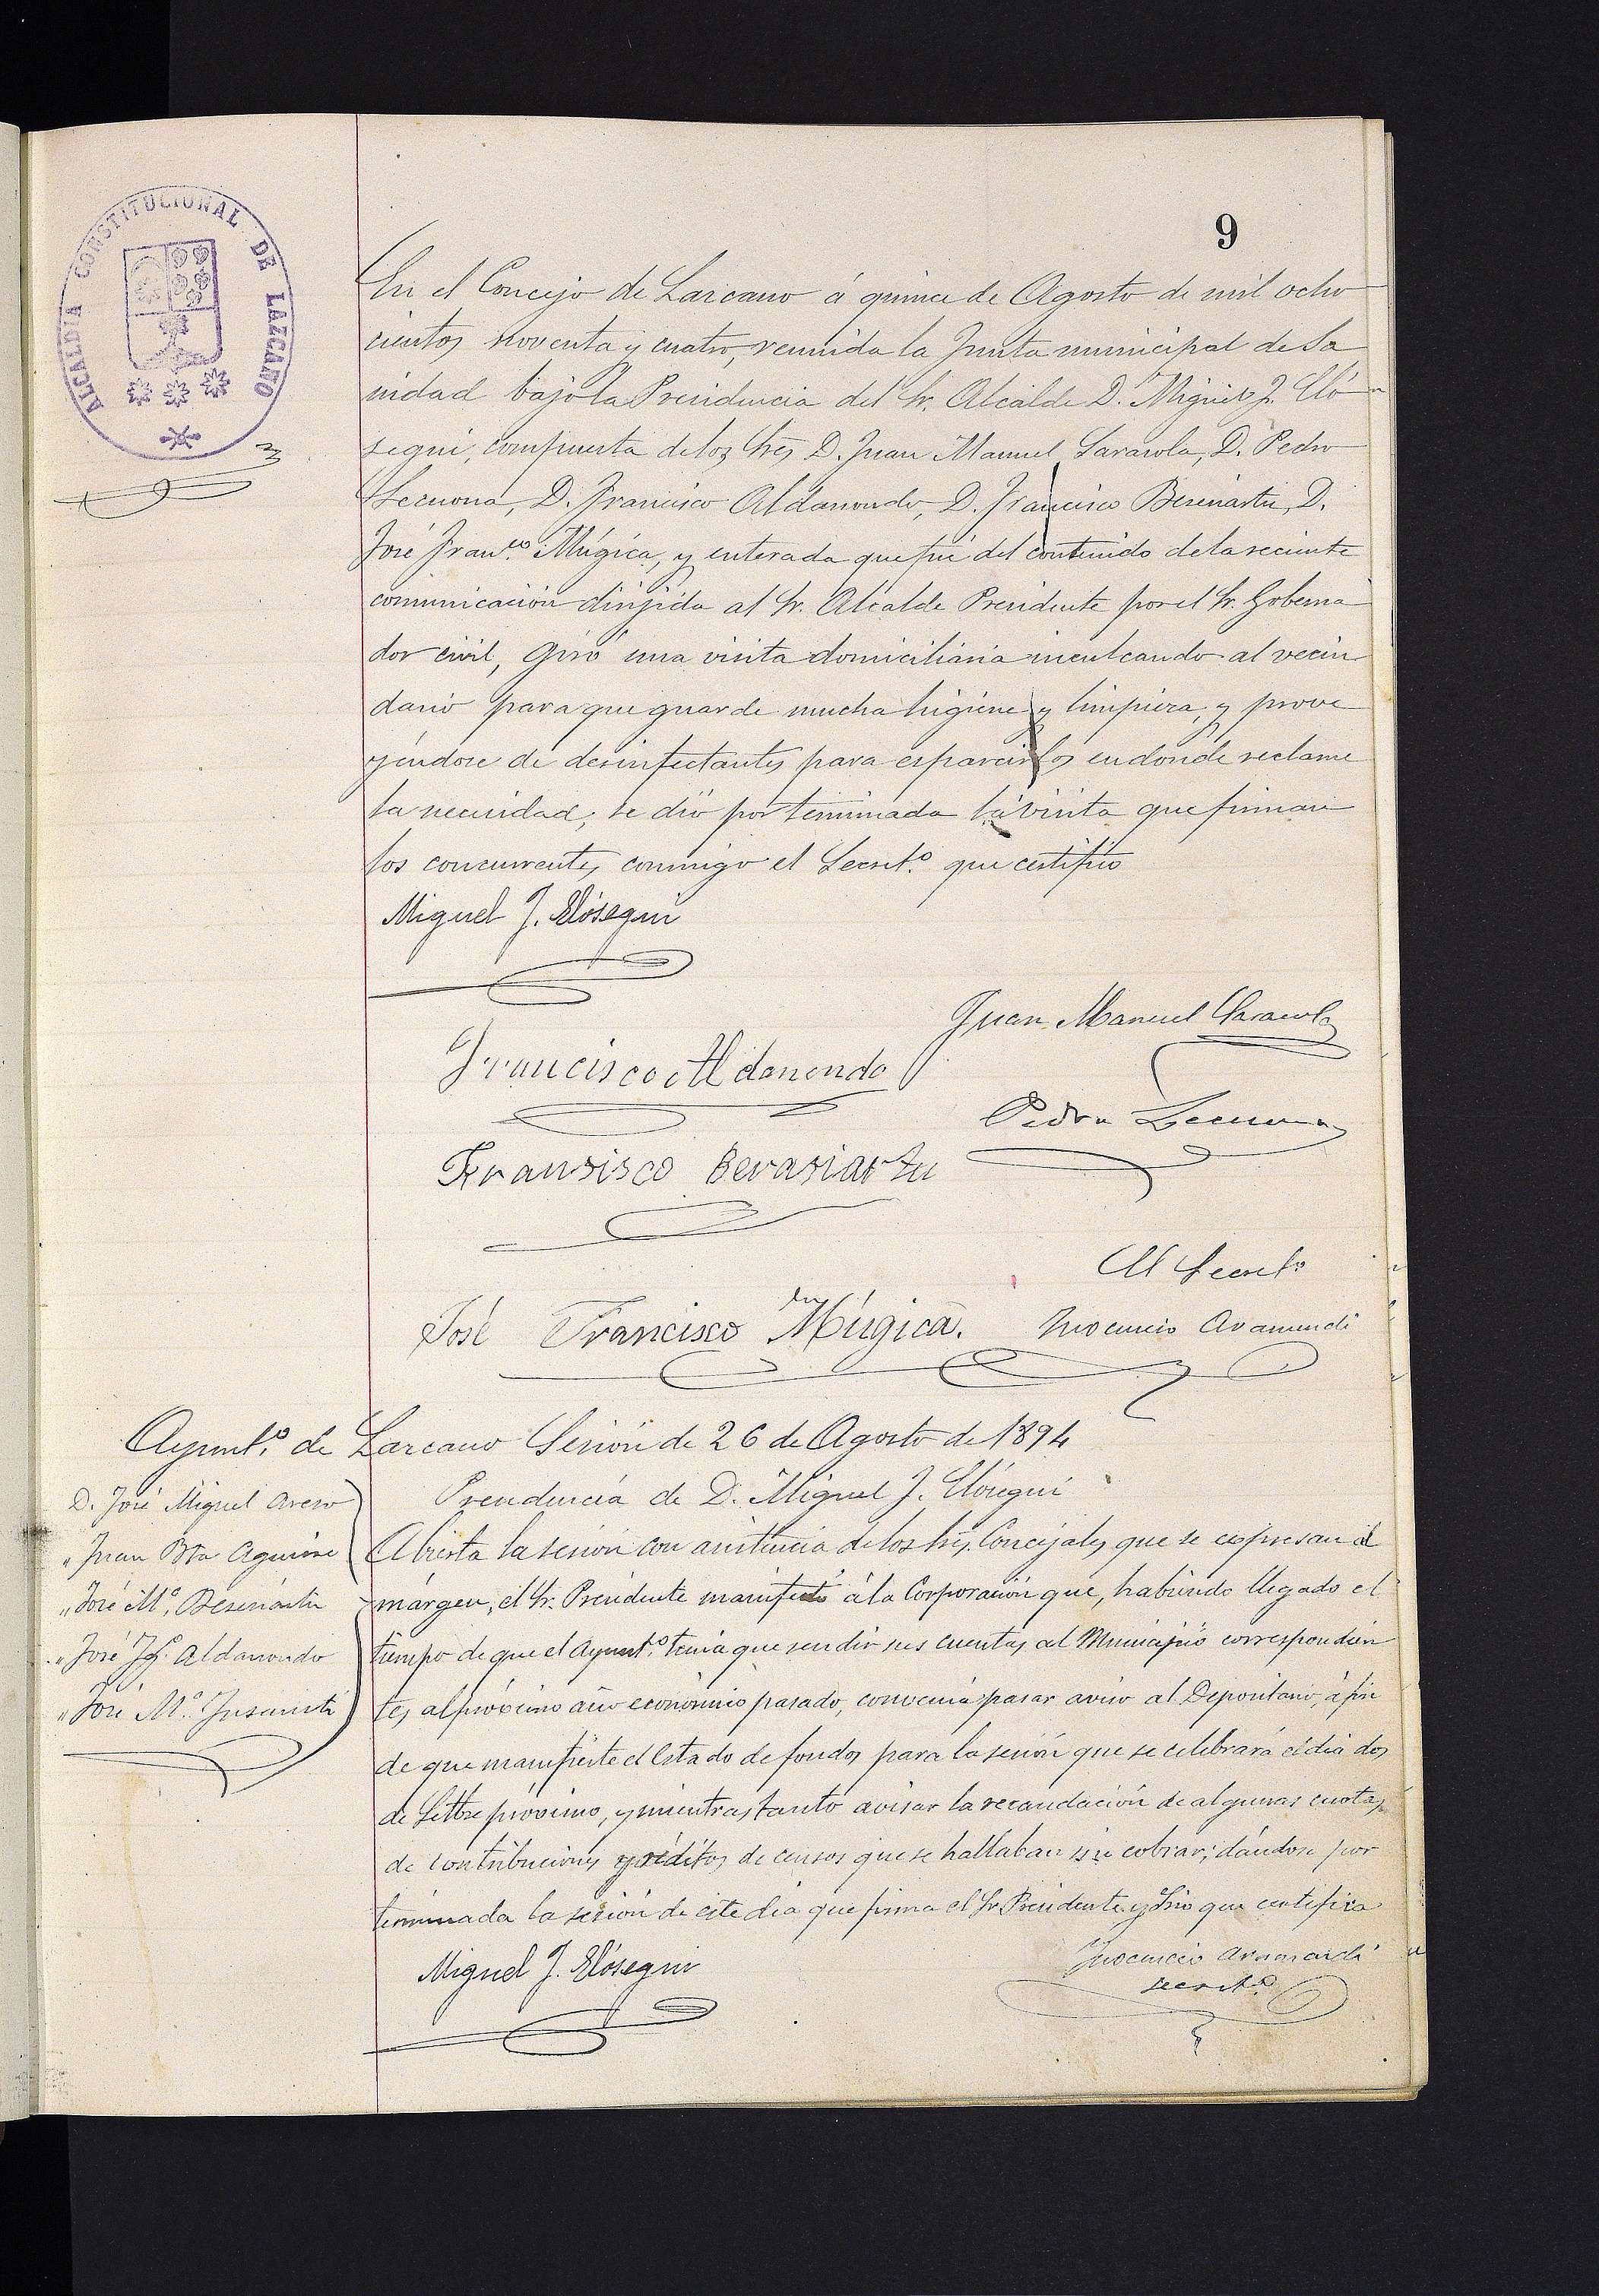 9
ALCALDIA CONSTITUCIONAL DE LAZCANO
En el Concejo de Lazcano á quince de Agosto de mil ocho
cientos noventa y cuatro, reunida la Junta municipal de Sa
nidad bajo la Presidencia del Sr. Alcalde D. Miguel J. Eló
segui, compuesta de los Sres D. Juan Manuel Sarasola, D. Pedro
Lecuona, D. Francisco Aldanondo, D. Francisco Beseiiartu, D.
José Franco. Múgica, y enterada que fué del contenido de la reciente
comunicación dirijida al Sr. Alcalde Presidente por el Sr. Goberna
dor civil, giró una visita domiciliaria inculcando al vecin
dario para que guarde mucha higiene y limpieza, y prove
yéndose de desinfectantes para esparcirlos en donde reclame
la necesidad; se dió por terminada la visita que firman
los concurrentes conmigo el Secreto. que certifico
Miguel J. Elósegui
Juan Manuel Sarasola
Francisco Aldanondo
Pedro Lecuona
Fransisco Berasiartu
El Secreto
José Francisco Múgica.
Inocencio Aramendi
Ayunto. de Lazcano Sesión de 26 de Agosto de 1894
Presidencia de D. Miguel J. Elósegui
D. José Miguel
" Juan Bta Aguirre
" José Ma.
" José Aldanondo
" José Ma. Insausti
Abierta la sesión con asistencia de los Sres Concejales que se espresan al
márgen, el Sr. Presidente manifestó á la Corporación que, habiendo llegado el
tiempo de que el Ayunto. tenia que rendir sus cuentas al Municipio correspondien
tes al próximo año económico pasado, convenia pasar aviso al Depositario, á fin
de que manifieste el Estado de fondos para la sesión que se celebrará el dia dos
de Setbre próximo, y mientras tanto avisar la recaudación de algunas cuotas
de contribuciones y réditos de censos que se hallaban sin cobrar; dándose por
terminada la sesión de este dia que firma el Sr Presidente y Srio que certifica
Miguel J. Elósegui
Inocencio Aramendi
Secreto.